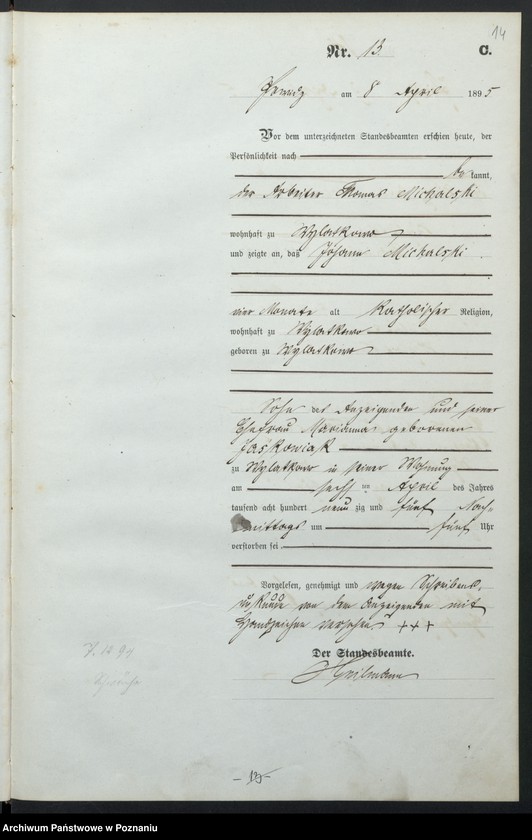 14
Nr. 13. C.
am 8 April 1895
Vor dem unterzeichneten Standesbeamten erschien heute, der
Persönlichkeit nach
be kannt,
der Arbeiter Thomas Michalski
wohnhaft zu Wylatkowo
und zeigte an, daß Johann Michalski
vier Monate alt katholischer Religion,
wohnhaft zu Wylatkowo
geboren zu Wylatkowo
Sohn des Anzeigenden und seiner
Ehefrau Marianna geborenen
Jaśkowiak
zu Wylatkowo in seiner Wohnung
am sechs ten April des Jahres
tausend acht hundert neun zig und fünf Nach-
mittags um fünf Uhr
verstorben sei.
Vorgelesen, genehmigt und wegen Schreibens-
unkunde von dem Anzeigenden mit
Handzeichen versehen. +++
Der Standesbeamte.
Archiwum Państwowe w Poznaniu